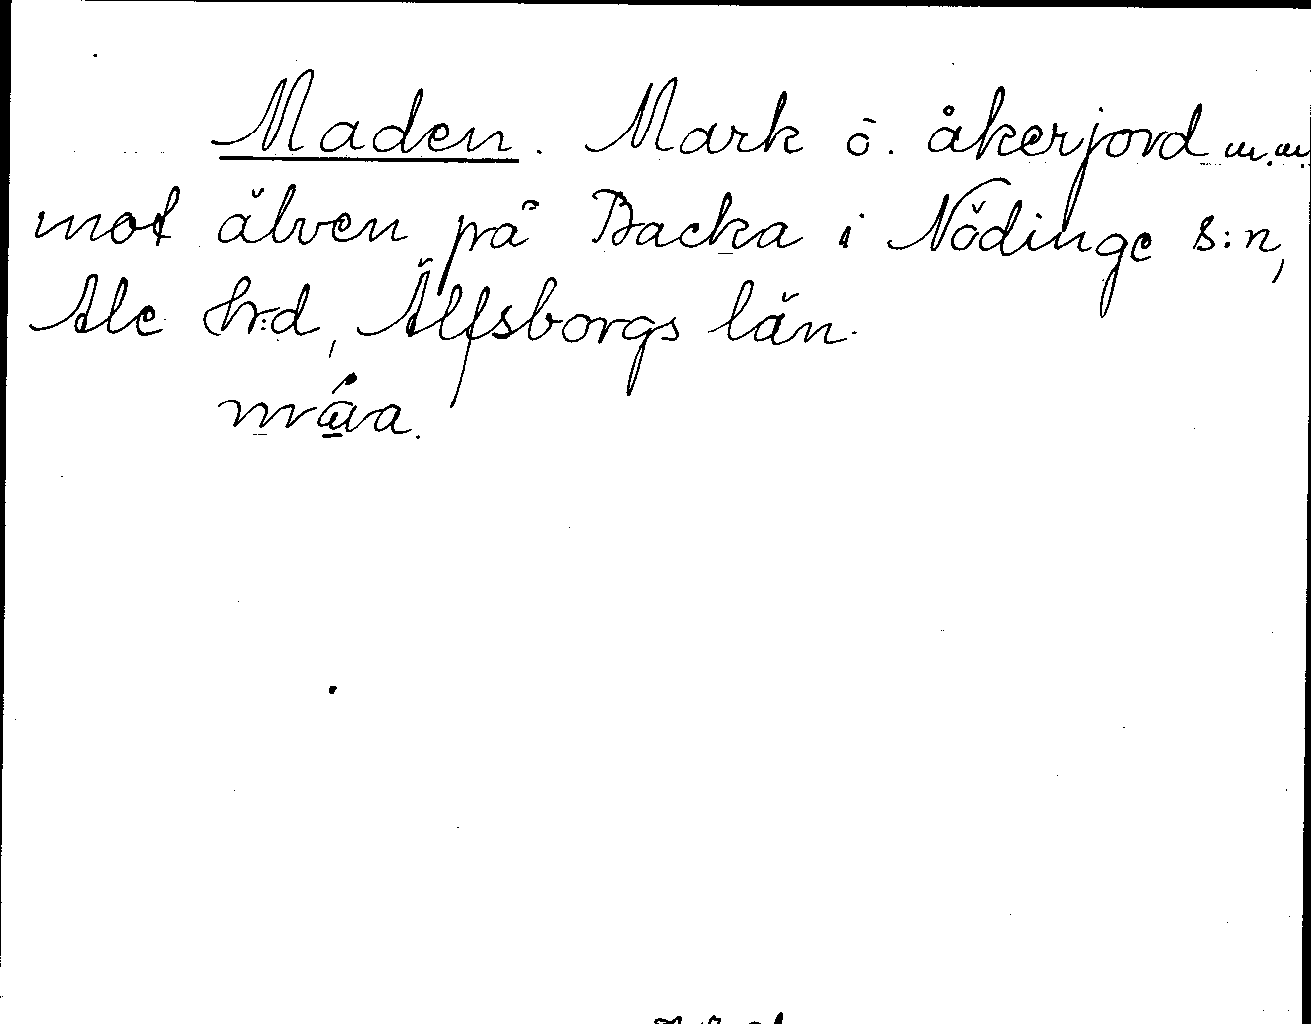 Maden. Mark ō. åkerjord m.m.
mot älven på Backa i Nödinge s:n,
Ale hrd, Älfsborgs län.